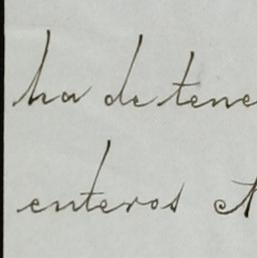 ha de tene
enteros et